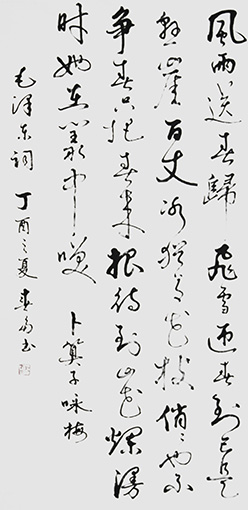 風雨送春歸飛雪迎春到已是
懸崖百丈冰猶有花枝俏々也不
争春只把春来報待到山花爛漫
时她在叢中唉卜算子咏梅
毛澤东词丁酉之夏春书